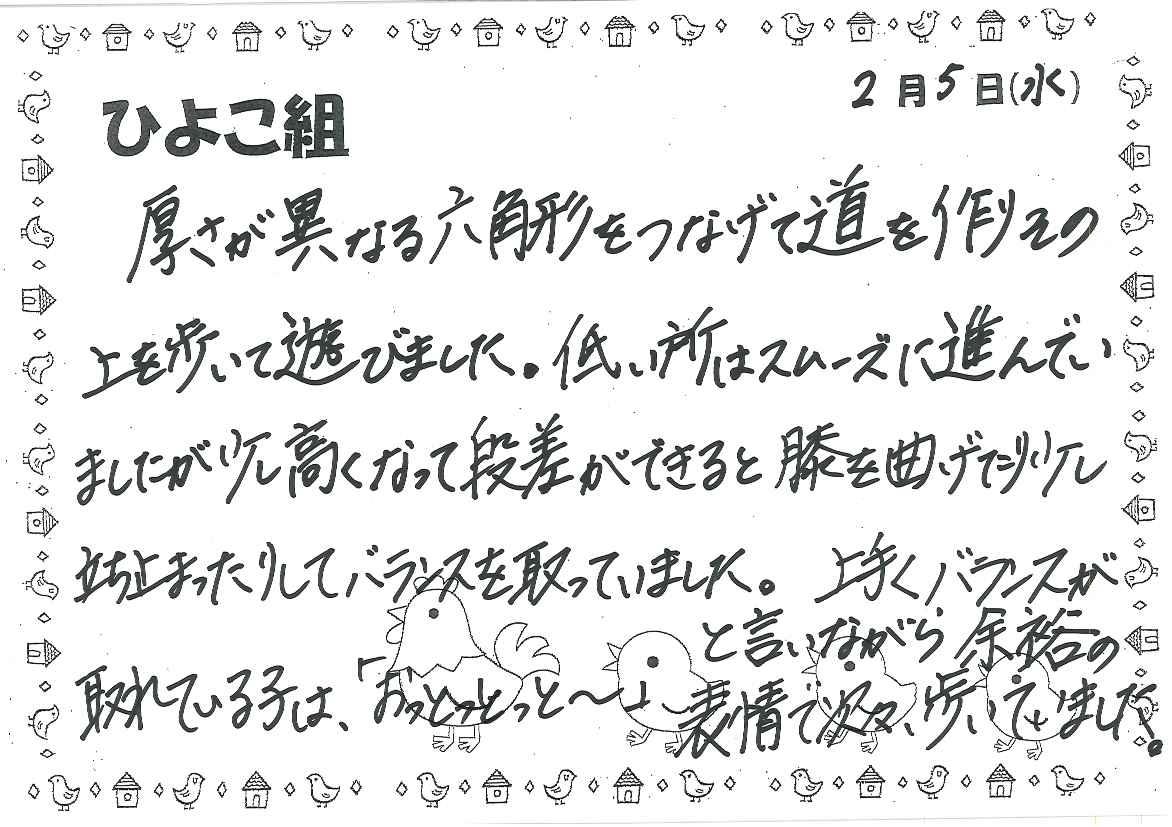 2月5日(水)
ひよこ組
厚さが異なる六角形をつなげて道を作りその
上を歩いて遊びました。低い所はスムーズに進んでい
ましたが少し高くなって段差ができると膝を曲げたり少し
立ち止まったりしてバランスを取っていました。上手くバランスが
取れている子は、「おっとっとっと〜」
と言いながら余裕の
表情で次々、歩いていました。